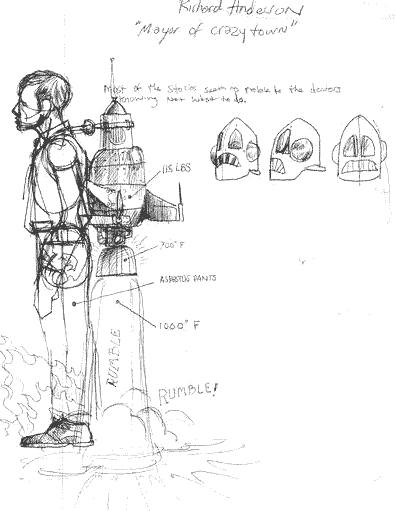 Richard Anderson
"Mayor of crazy town"
Most of the stories seem to relate to the doctors
knowing not what to do.
115 LBS
700° F
ASBESTOS PANTS
1000° F
RUMBLE
RUMBLE!